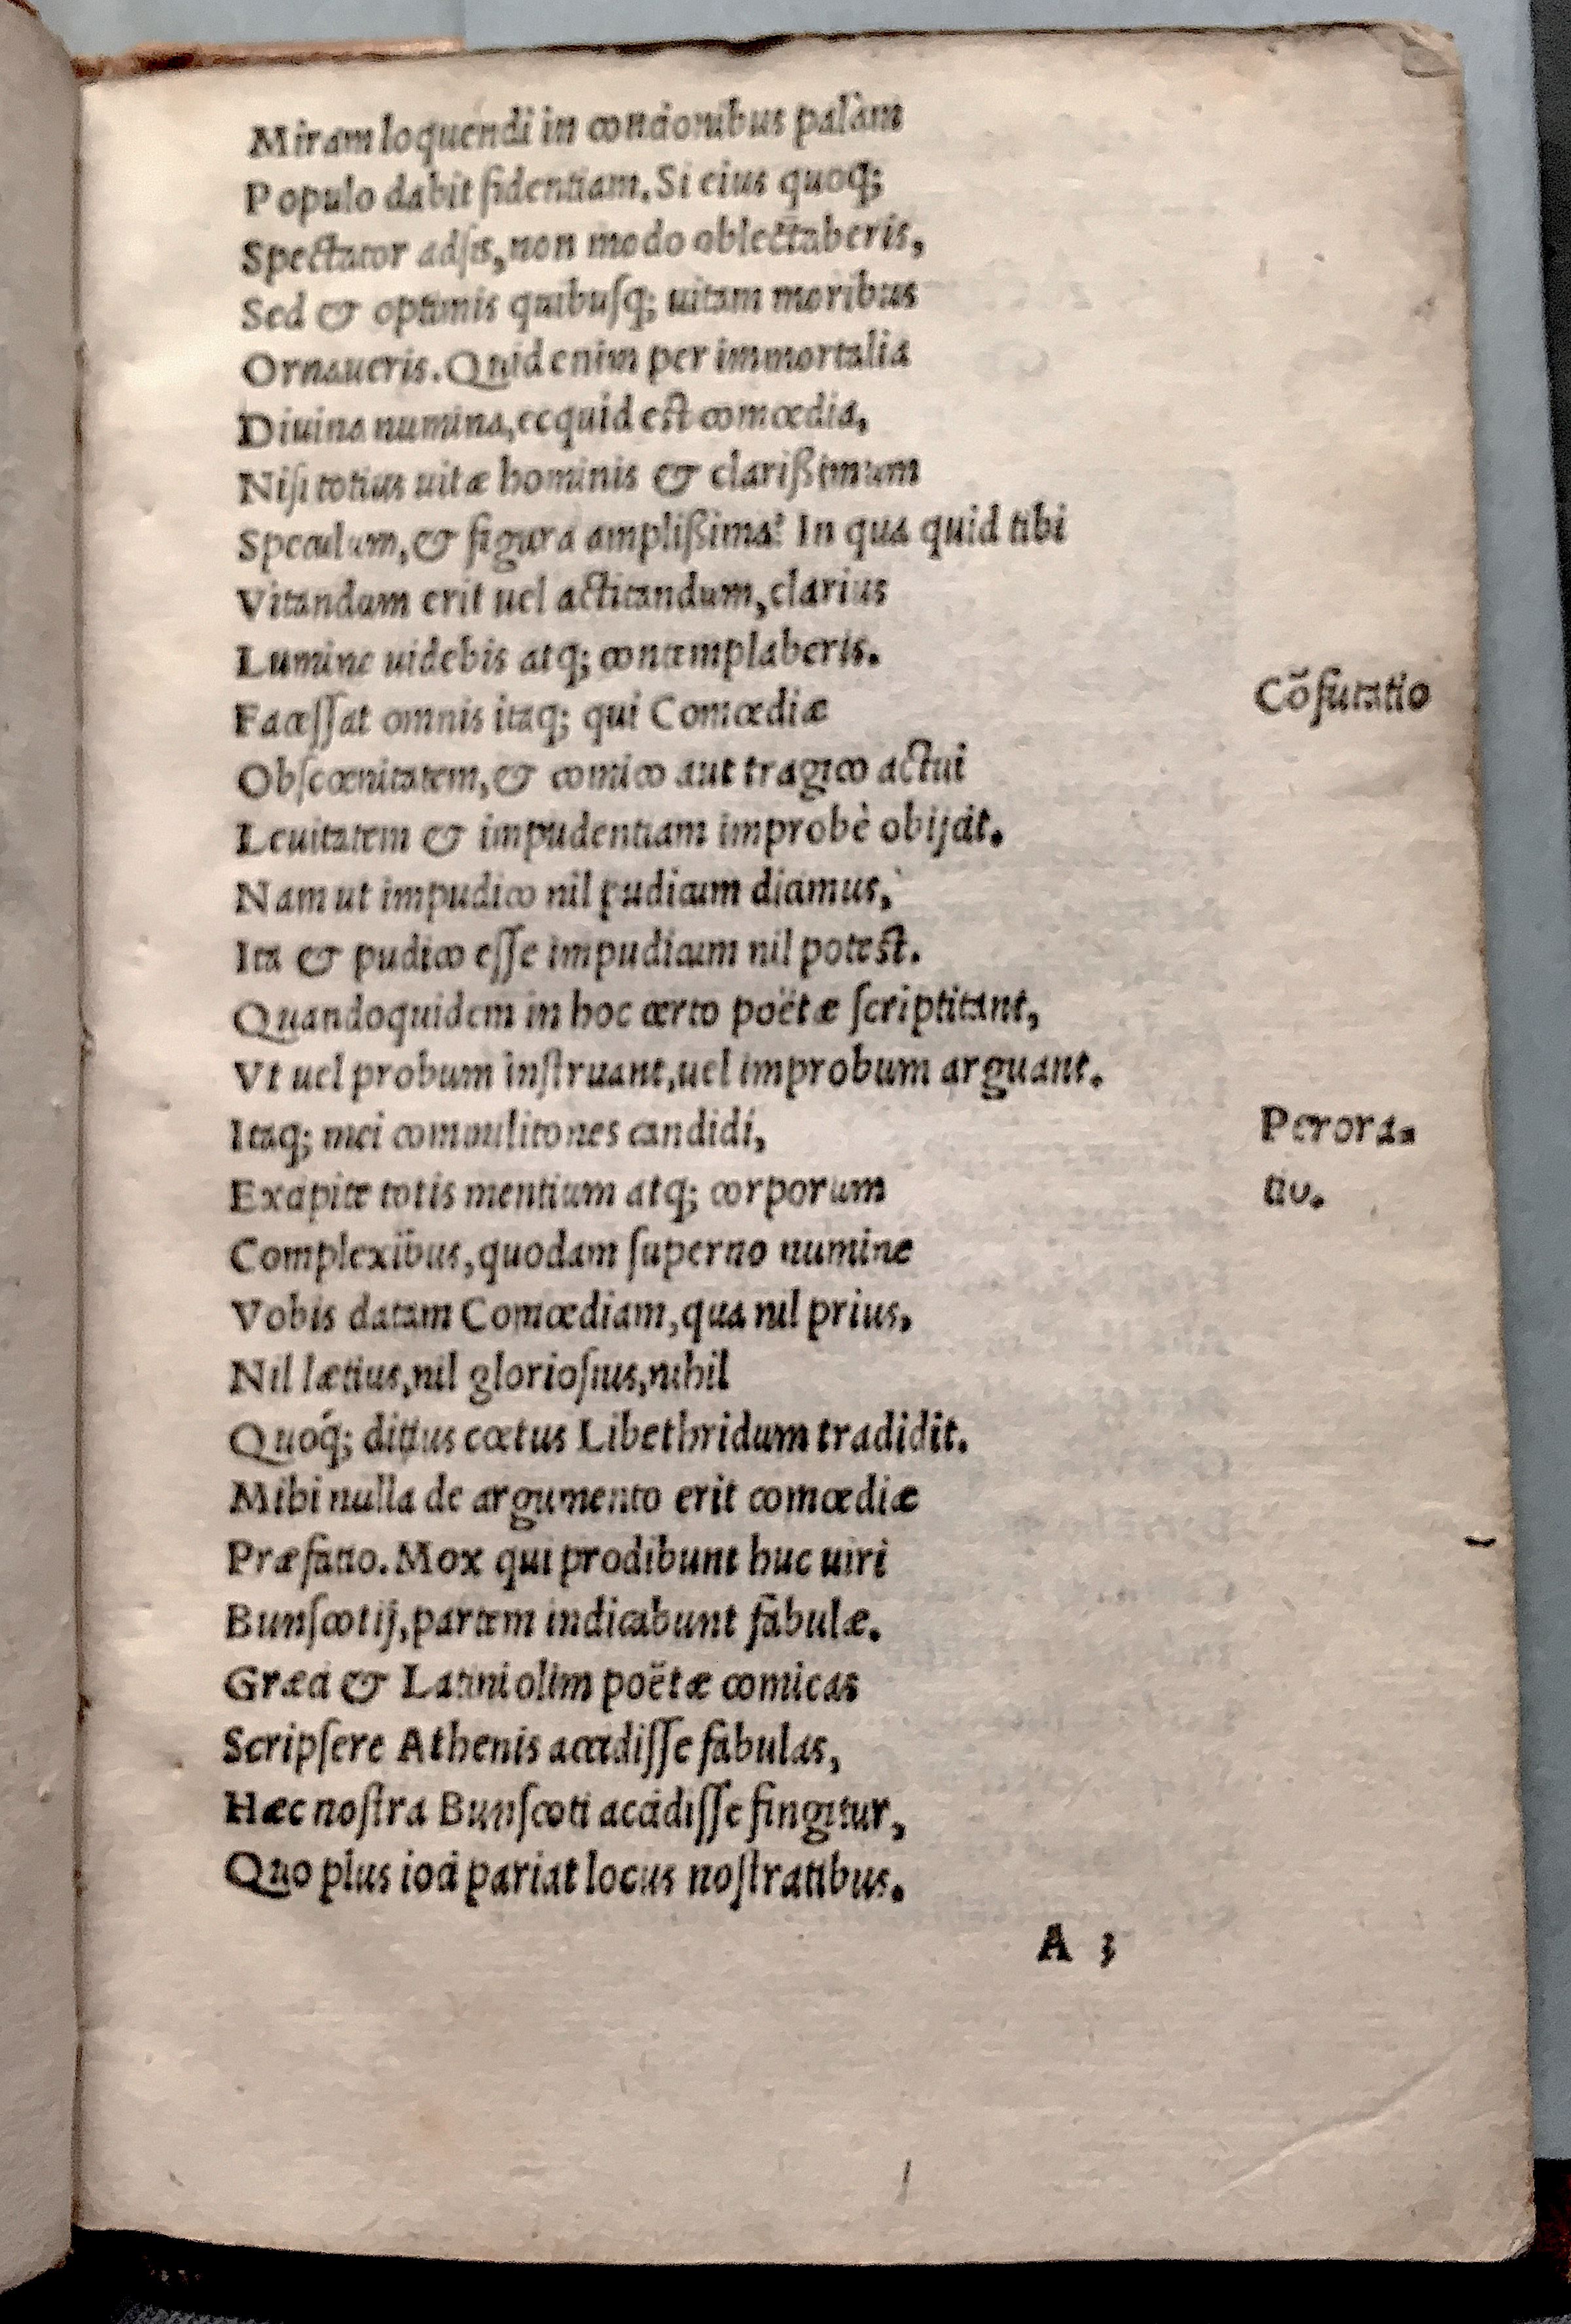 Miram loquendi in concionibus palàm
Populo dabit fidentiam. Si eius quoq;
Spectator adſis, non modo oblectaberis,
Sed & optimis quibuſq; uitam moribus
Ornaueris. Quid enim per immortalia
Diuina numina, ecquid est comœdia,
Niſi totius uitæ hominis & clarißimum
Speculum, & figura amplißima? In qua quid tibi
Vitandum erit uel actitandum, clarius
Lumine uidebis atq; contemplaberis.
Faceſſat omnis itaq; qui Comœdiæ
Cõfutatio
Obſcœnitatem, & comico aut tragico actui
Leuitatem & impudentiam improbè obijcit.
Nam ut impudico nil pudicum dicimus,
Ita & pudico eſſe impudicum nil potest.
Quandoquidem in hoc certo poëtæ ſcriptitant,
Vt uel probum inſtruant, uel improbum arguant.
Itaq; mei commilitones candidi,
Perora-
Excipite totis mentium atq; corporum
tio.
Complexibus, quodam ſuperno numine
Vobis datam Comœdiam, qua nil prius,
Nil lætius, nil glorioſius, nihil
Quóq; ditius cœtus Libethridum tradidit.
Mihi nulla de argumento erit comœdiæ
Præfatio. Mox qui prodibunt huc uiri
Bunſcotij, partem indicabunt fabulæ.
Græci & Latini olim poëtæ comicas
Scripſere Athenis accidiſſe fabulas,
Hæc noſtra Bunſcoti accidiſſe fingitur,
Quo plus ioci pariat locus noſtratibus.
A 3